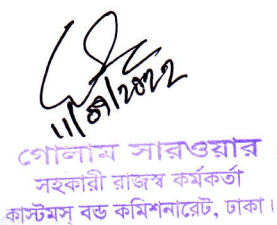 11/09/2022
গোলাম সারওয়ার
সহকারী রাজস্ব কর্মকর্তা
কাস্টমস্ বন্ড কমিশনারেট, ঢাকা।